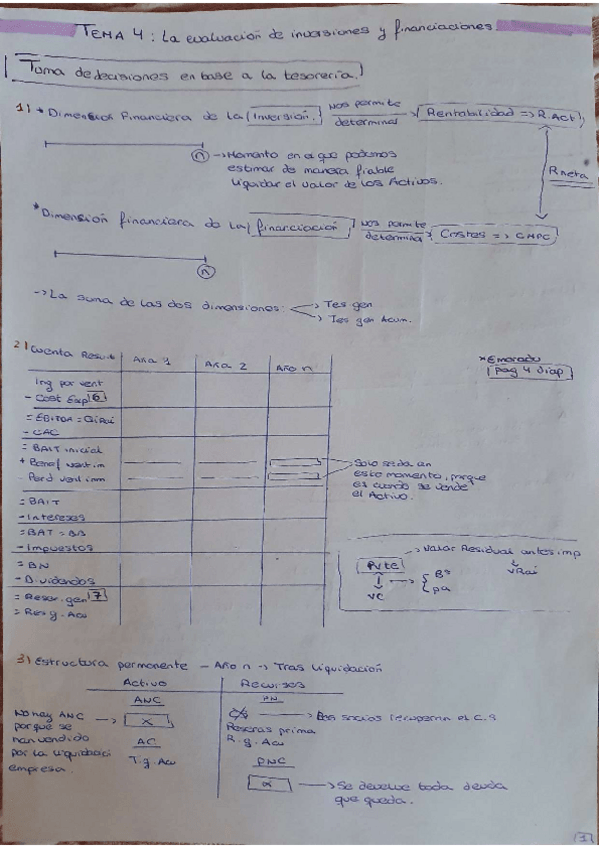 TEMA 4: La evaluación de inversiones y financiaciones
Toma de decisiones en base a la tesorería.
1) * Dimensión Financiera de la Inversión. nos permite determinar Rentabilidad => R.Act
n -> Momento en el que podemos
estimar de manera fiable
liquidar el valor de los Activos.
Rneta
* Dimensión financiera de la financiación nos permite determina Costes => CMPC
n
-> La suma de las dos dimensiones: -> Tes gen
-> Tes gen Acum.
2) Cuenta Result Año 1 Año 2 Año n
pag 4 diap
Ing por vent
- Cost Exp 6
= EBITDA =
- CAC
= BAIT inicial
+ Benef vent im
- Perd vent inm
-> Solo se da en
este momento, porque
es cuando se vende
el Activo.
= BAIT
- Intereses
= BAT = BB
- Impuestos
= BN
- Dividendos
= Reser. gen 7
= Res g. Acu
-> Valor Residual antes imp
Pvta
VC
Bº
Pd
VRai
3) Estructura permanente - Año n -> Tras liquidación
Activo Recursos
ANC PN
No hay ANC
porque se
han vendido
por la liquidació
empresa.
X
AC
T.g. Acu
CS -> Los socios recuperan el C.S
Reservas prima
R.g. Acu
PNC
-> Se devuelve toda deuda
que queda.